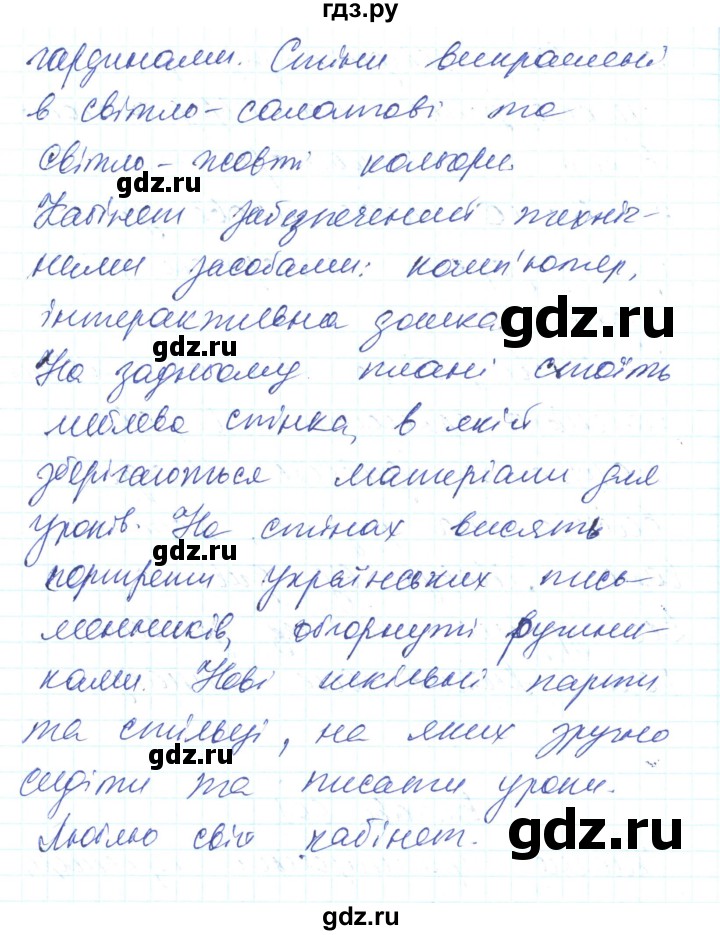 гдз.ру
гардинами. Стіни викрашені
в світло-салатові та
світло-жовті кольори.
gdz.ru
Кабінет забезпечений техніч-
ними засобами: комп'ютер,
інтерактивна дошка.
gdz.ru
gdz.ru
На задньому плані стоїть
меблева стінка, в якій
зберігаються матеріали для
уроків. На стінах висять
gdz.ru
портрети українських пись-
менників, обгорнуті рушни-
ками. Нові шкільні парти
та стільці, на яких зручно
gdz.ru
сидіти та писати уроки.
gdz.ru
Люблю свій кабінет.
gdz.ru
gdz.ru